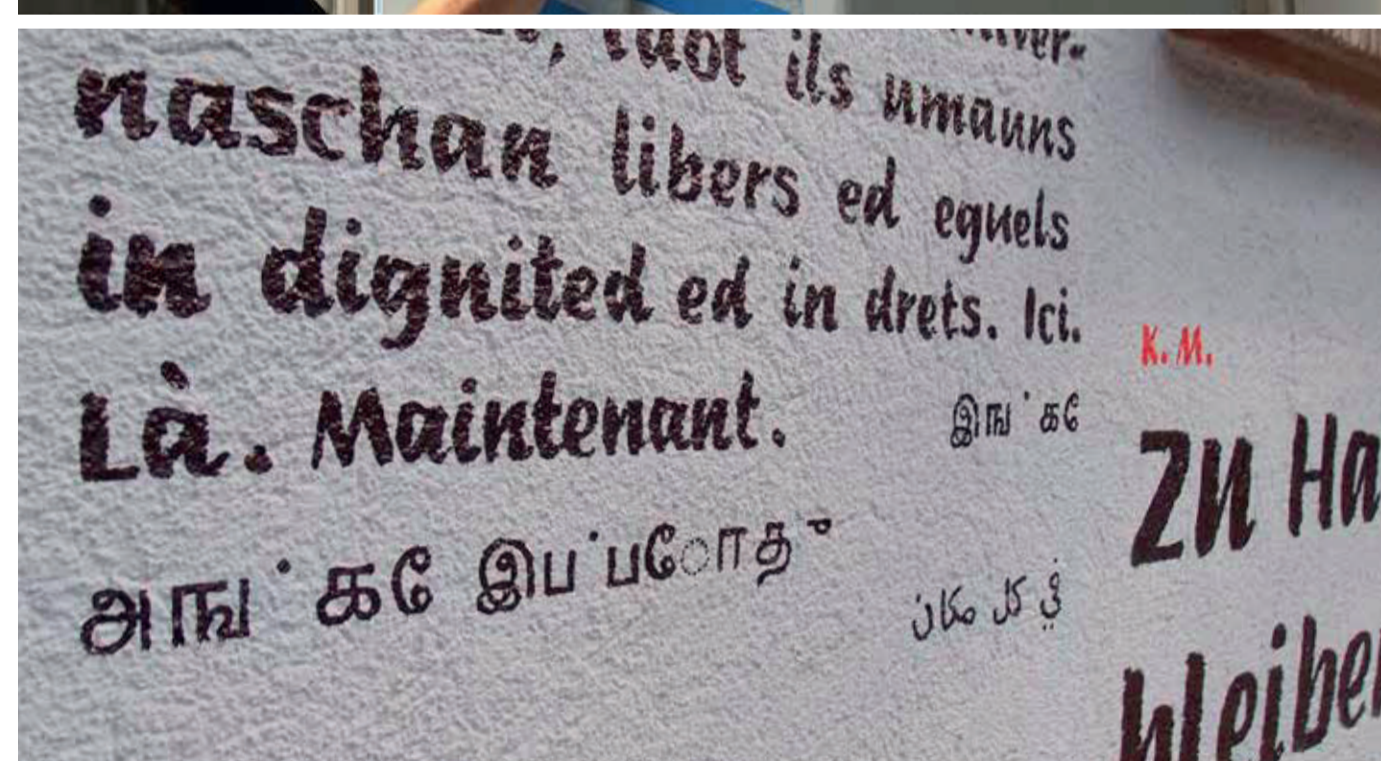 tuot ils umauns
naschan libers ed eguels
in dignited ed in drets. Ici.
Là. Maintenant.
இங்கே
அங்கே இப்போது
في كل مكان
K. M.
Zu Ha
bleibe